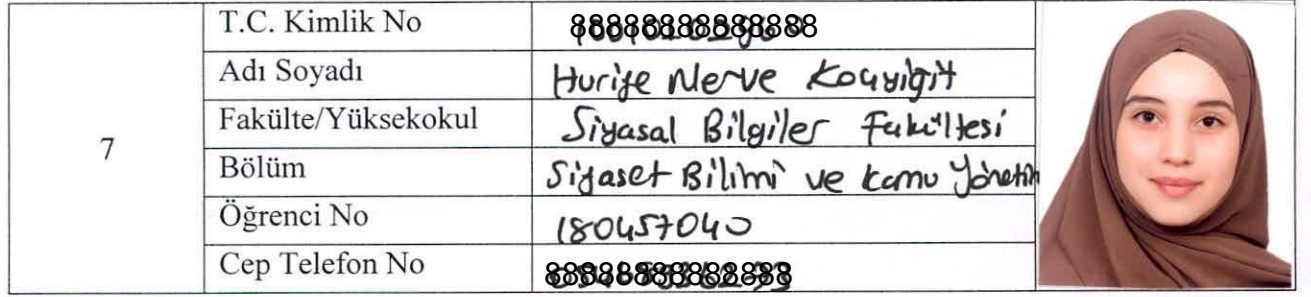 7
T.C. Kimlik No
Adı Soyadı Huriye Merve Koçyiğit
Fakülte/Yüksekokul Siyasal Bilgiler Fakültesi
Bölüm Siyaset Bilimi ve Kamu Yönetim
Öğrenci No 180457040
Cep Telefon No